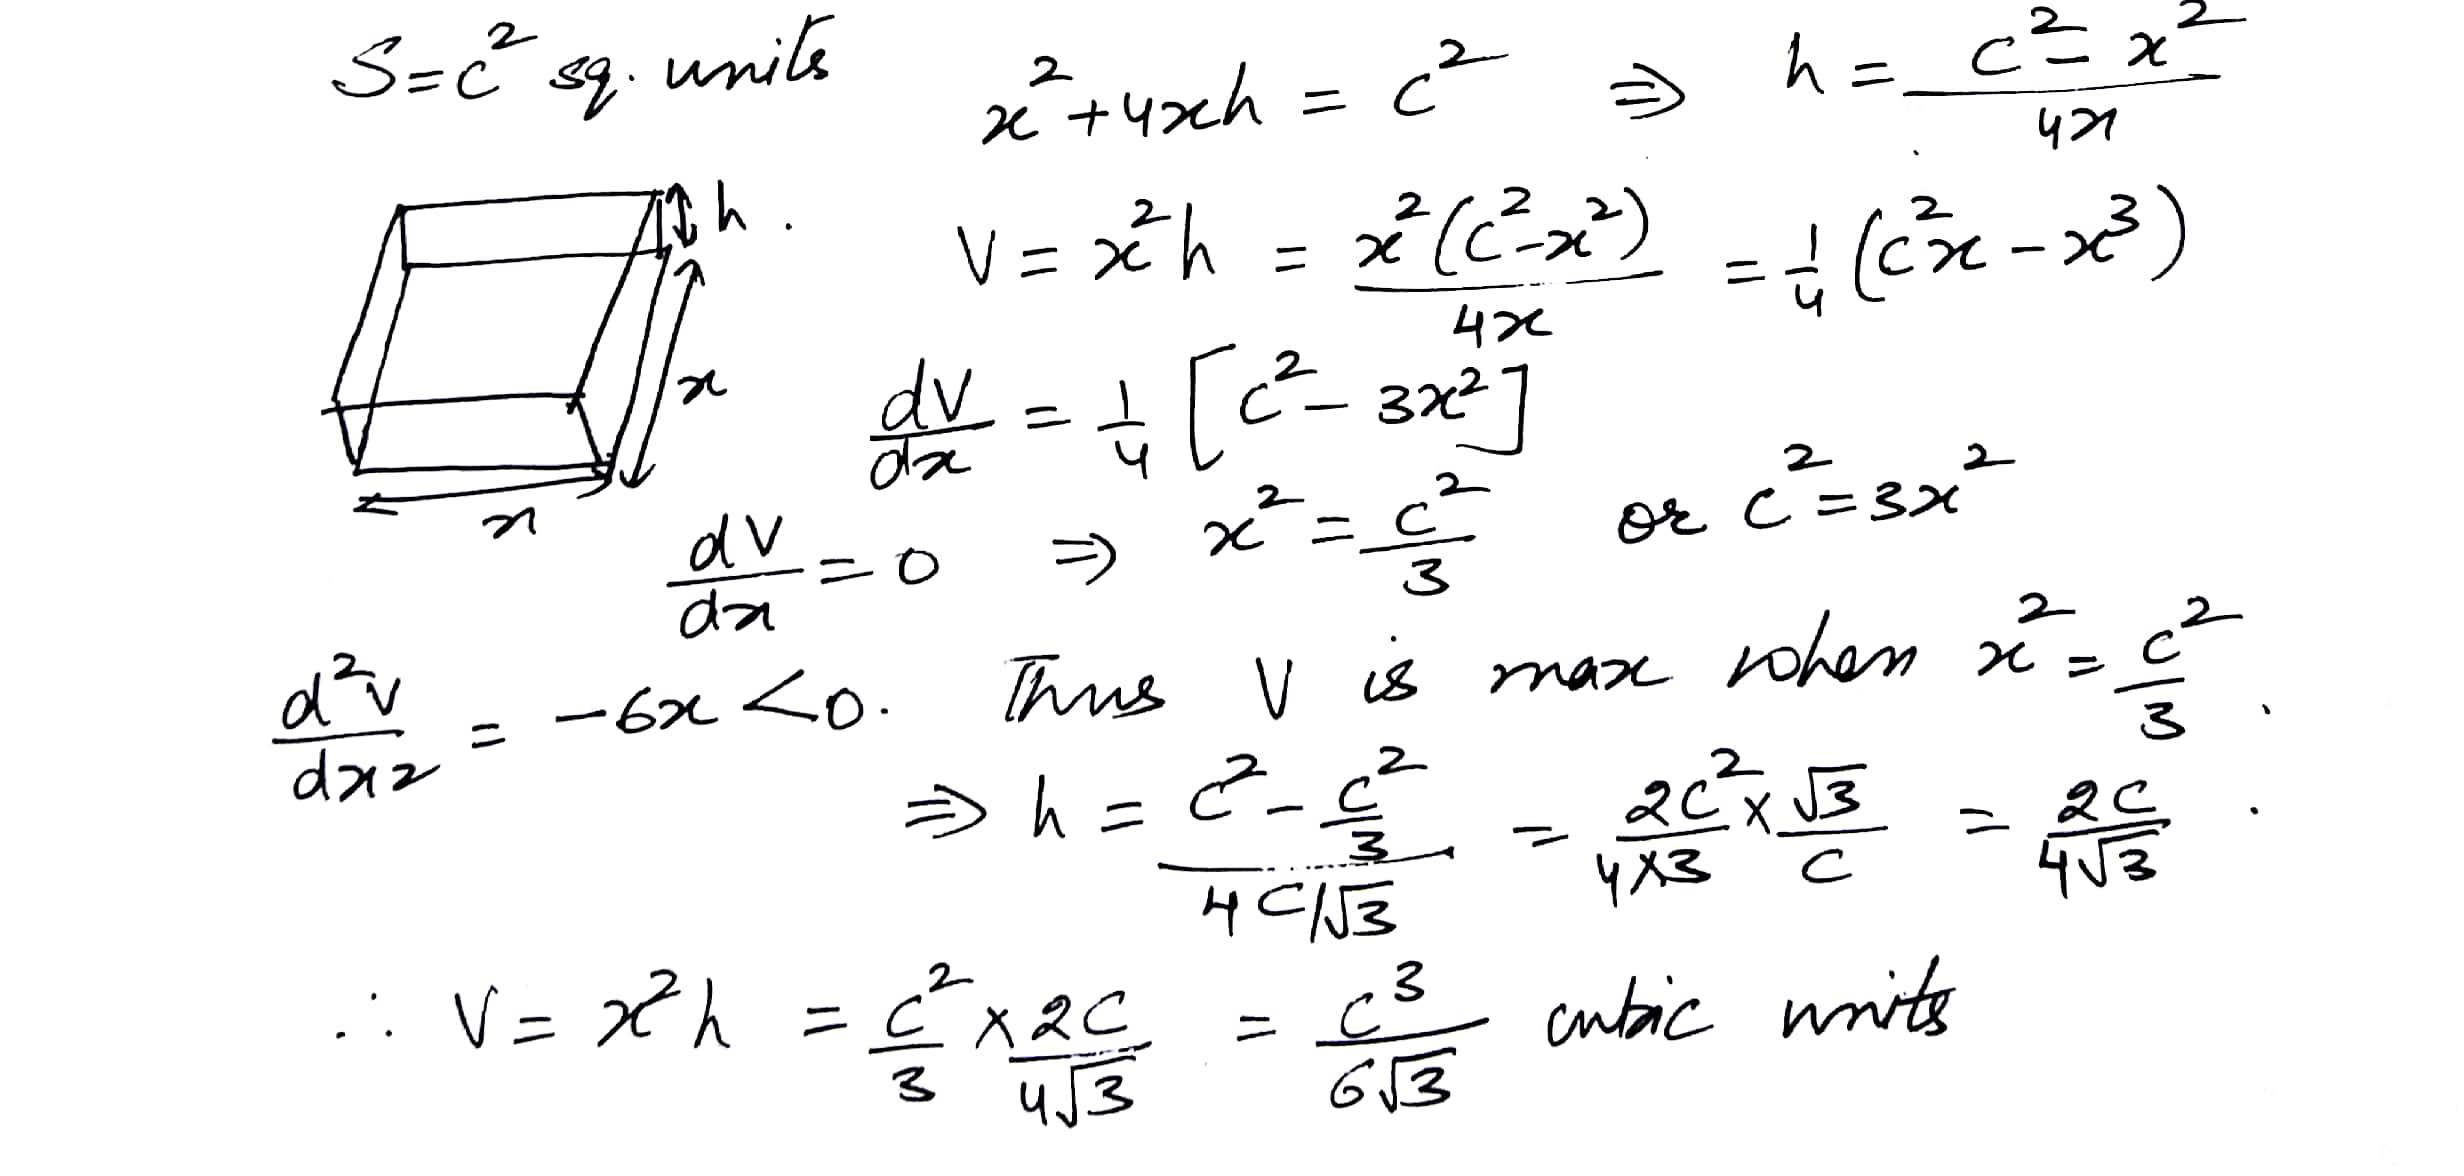 S = c² sq. units
x² + 4xh = c² ⇒ h = (c² = x²)/4x
h.
V = x²h = x²(c² - x²)/4x = 1/4 (c²x - x³)
x
dV/dx = 1/4 [c² - 3x²]
x
dV/dx = 0 ⇒ x² = c²/3 or c² = 3x²
d²V/dx2 = -6x < 0. Thus V is max when x² = c²/3.
⇒ h = (c² - c²/3)/(4c/√3) = 2c²/(4×3) × √3/c = 2c/4√3.
∴ V = x²h = c²/3 × 2c/4√3 = c³/6√3 cubic units